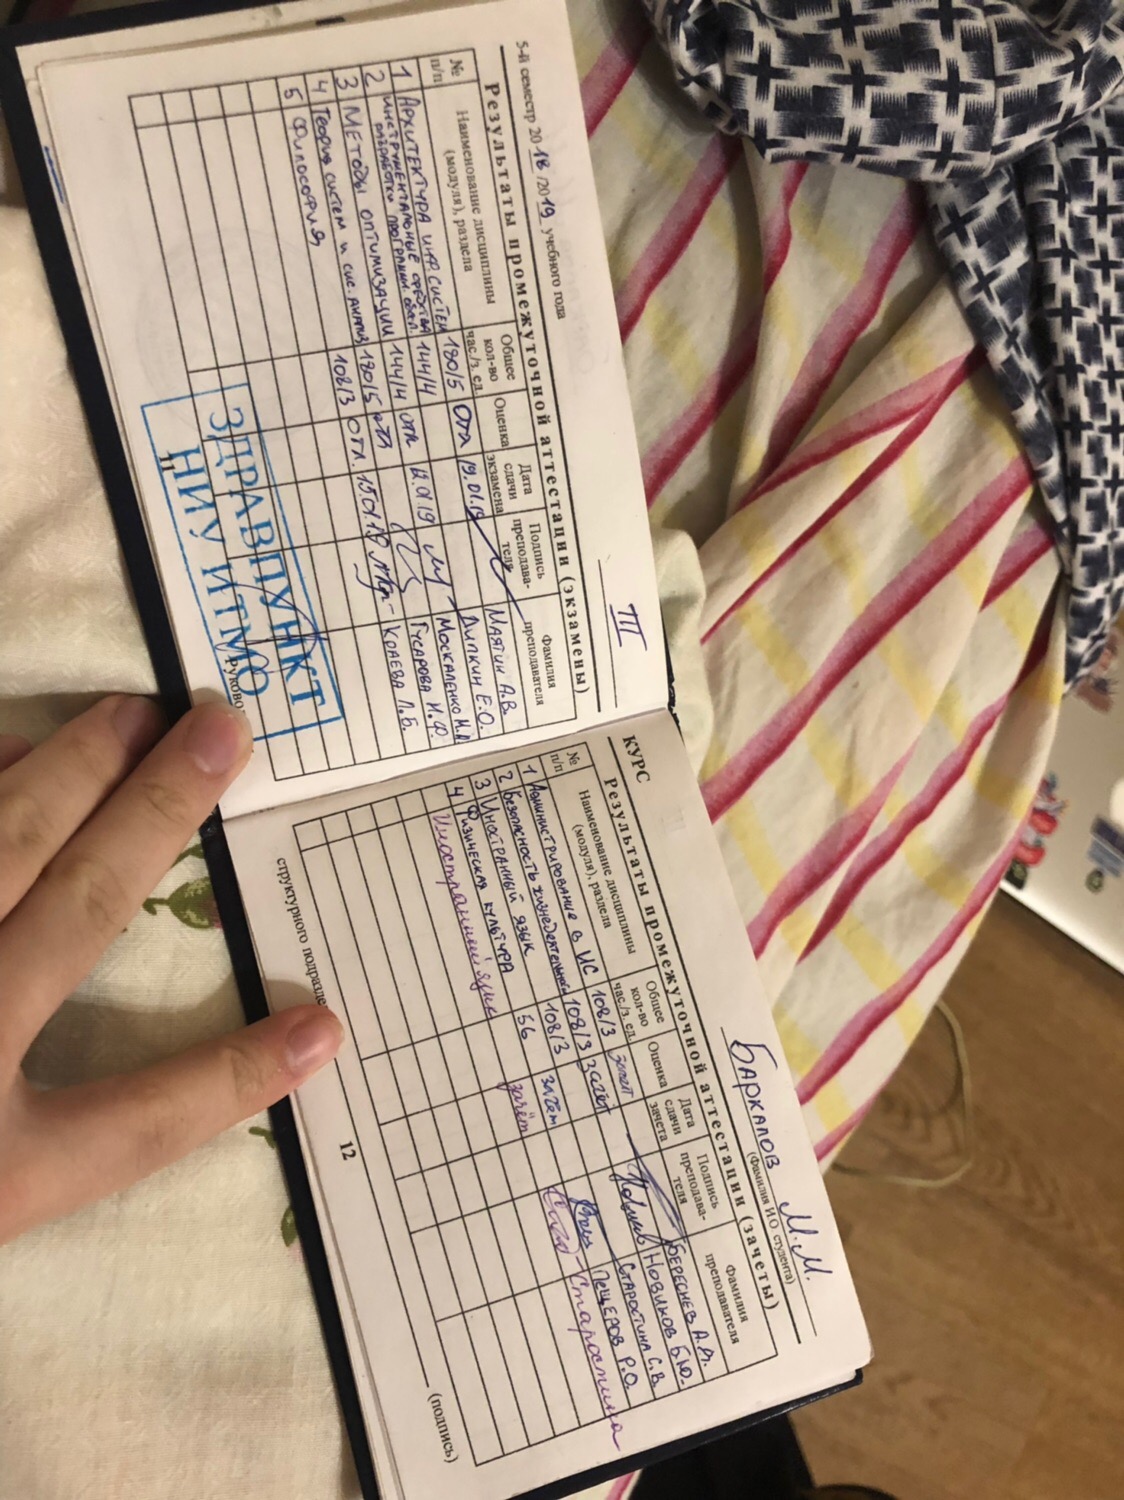 5-й семестр 2018/2019 учебного года III
Результаты промежуточной аттестации (экзамены)
№ п/п Наименование дисциплины (модуля), раздела Общее кол-во час./з. ед. Оценка Дата сдачи экзамена Подпись преподава-теля Фамилия преподавателя
1 Архитектура инф. систем 180/5 Отл 19.01.19 Маятин А.В.
2 Инструментальные средства разработки программ. обесп. 144/4 Дипкин Е.О.
3 Методы оптимизации 144/4 отл 12.01.19 Москаленко М.А.
4 Теория систем и сис. анализ 180/5 отл Гусарова Н.Ф.
5 Философия 108/3 Отл. 15.01.19 Краева Л.Б.
ЗДРАВПУНКТ
НИУ ИТМО
Руково
11
Баркалов М.М.
(Фамилия И.О. студента)
КУРС
Результаты промежуточной аттестации (зачеты)
№ п/п Наименование дисциплины (модуля), раздела Общее кол-во час./з. ед. Оценка Дата сдачи зачета Подпись преподава-теля Фамилия преподавателя
1 Администрирование в ИС 108/3 зачет Береснев А.Д.
2 Безопасность жизнедеятельности 108/3 зачёт Новиков Б.Ю.
3 Иностранный язык 108/3 Старостина С.В.
4 Физическая культура 56 зачет Пещеров Р.О.
Иностранный язык зачёт Старостина
(подпись)
структурного подразде
12